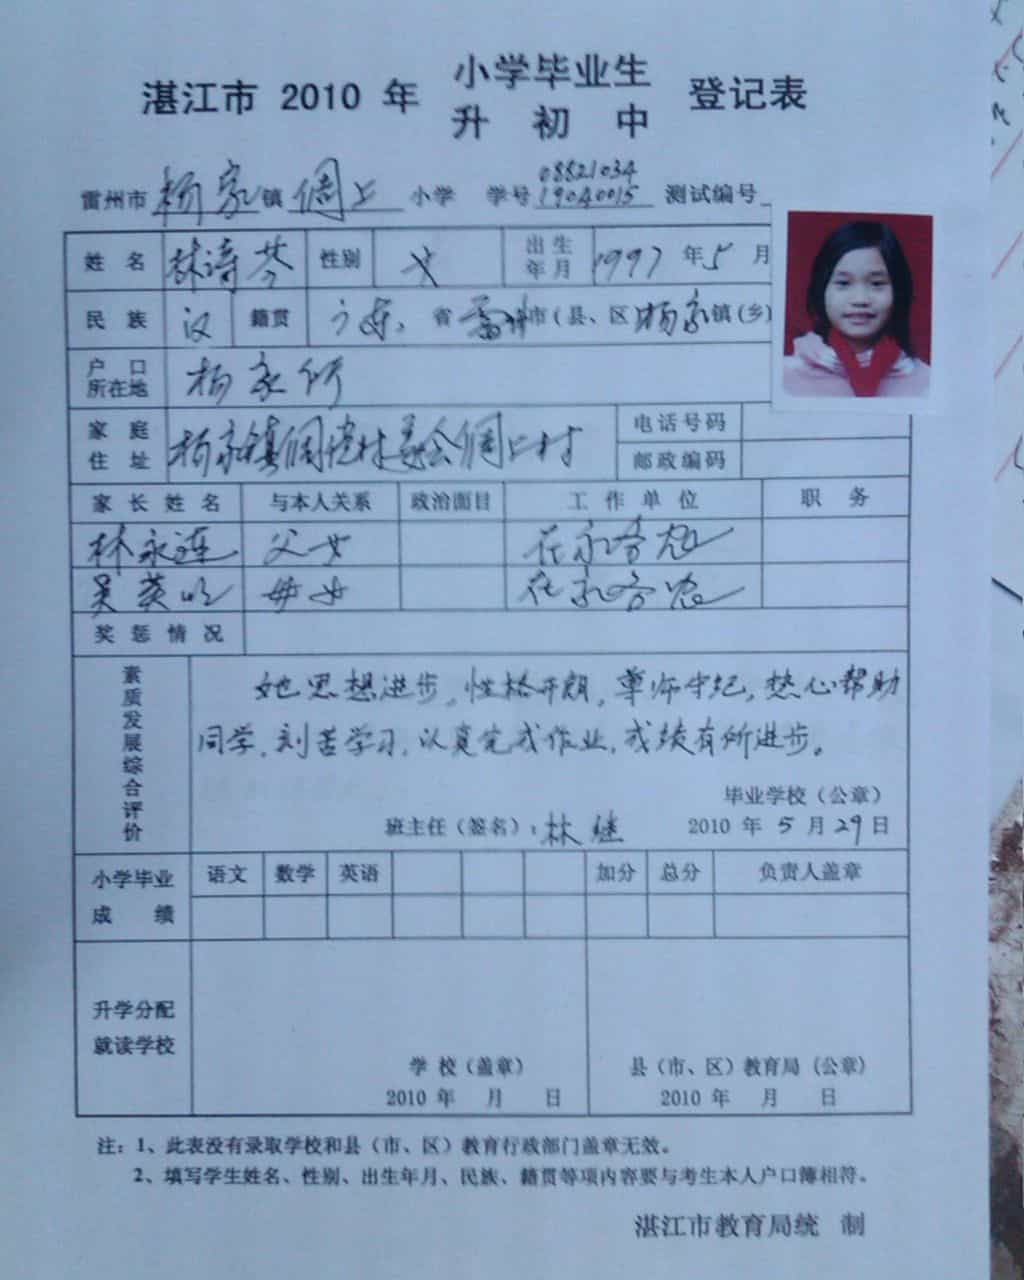 湛江市 2010 年 小学毕业生 登记表
升 初 中
雷州市 杨家 镇 倜上 小学 学号 08821034 19040015 测试编号
姓 名 林诗芬 性别 女 出生年月 1997 年 5 月
民 族 汉 籍贯 广东 省 雷州 市(县、区) 杨家 镇(乡)
户 口 所在地 杨家
家 庭 住 址 杨家镇 村委会倜上村 电话号码
邮政编码
家 长 姓 名 与本人关系 政治面目 工 作 单 位 职 务
林永连 父女 在家务农
吴英 母女 在家务农
奖 惩 情 况
素质发展综合评价
她思想进步,性格开朗,尊师守纪,热心帮助
同学,刻苦学习,认真完成作业,成绩有所进步。
毕业学校(公章)
班主任(签名): 林继 2010 年 5 月 29 日
小学毕业 成 绩 语文 数学 英语 加分 总分 负责人盖章
升学分配
就读学校
学 校(盖章) 县(市、区)教育局(公章)
2010 年 月 日 2010 年 月 日
注:1、此表没有录取学校和县(市、区)教育行政部门盖章无效。
2、填写学生姓名、性别、出生年月、民族、籍贯等项内容要与考生本人户口簿相符。
湛江市教育局统 制